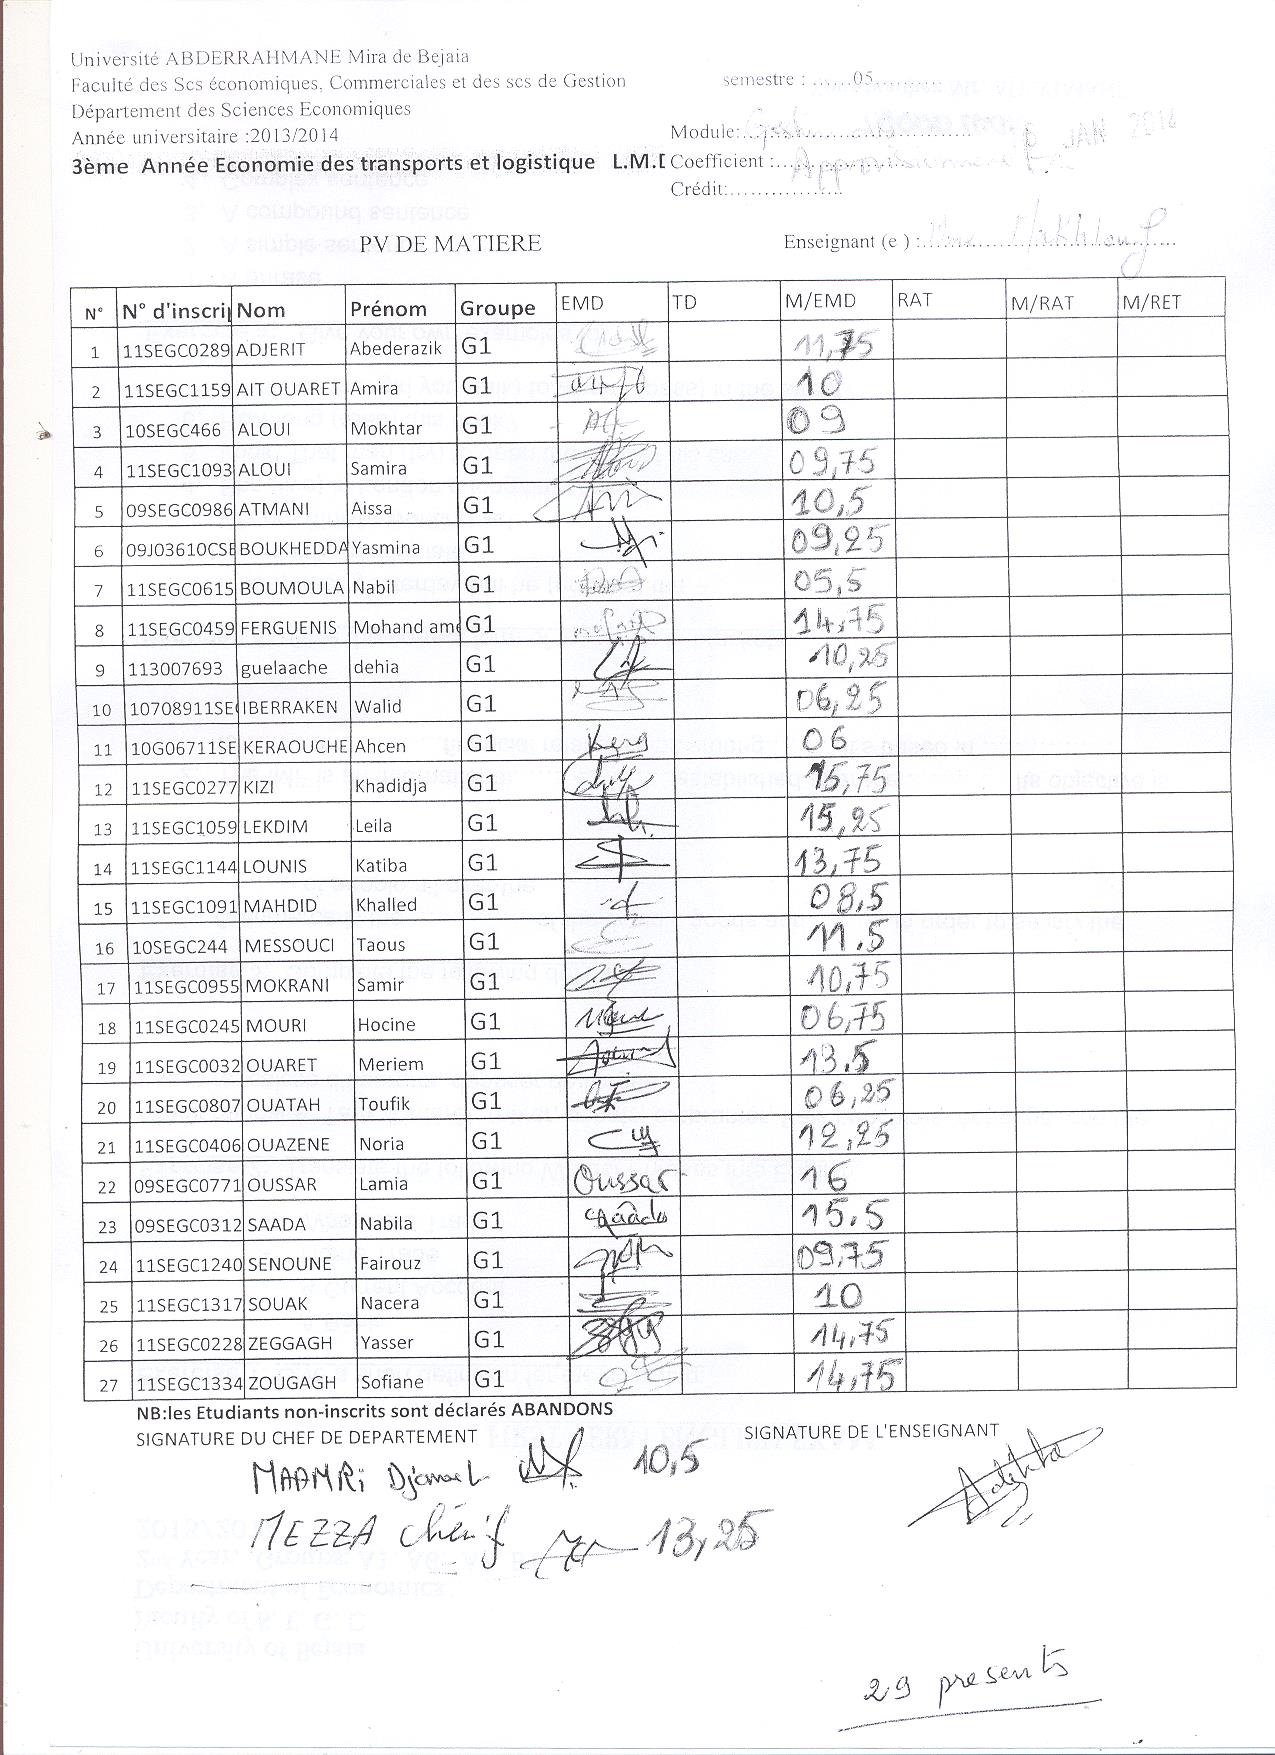 Université ABDERRAHMANE Mira de Bejaia
Faculté des Scs économiques, Commerciales et des scs de Gestion
semestre : ......05............
Département des Sciences Economiques
Année universitaire :2013/2014
Module:
JAN 2014
3ème Année Economie des transports et logistique L.M.D
Coefficient :
Crédit:.................
PV DE MATIERE
Enseignant (e ) : Mme Makhlouf
N° N° d'inscrip Nom Prénom Groupe EMD TD M/EMD RAT M/RAT M/RET
1 11SEGC0289 ADJERIT Abederazik G1 11,75
2 11SEGC1159 AIT OUARET Amira G1 10
3 10SEGC466 ALOUI Mokhtar G1 09
4 11SEGC1093 ALOUI Samira G1 09,75
5 09SEGC0986 ATMANI Aissa G1 10,5
6 09J03610CSE BOUKHEDDA Yasmina G1 09,25
7 11SEGC0615 BOUMOULA Nabil G1 05,5
8 11SEGC0459 FERGUENIS Mohand ame G1 14,75
9 113007693 guelaache dehia G1 10,25
10 10708911SE IBERRAKEN Walid G1 06,25
11 10G06711SE KERAOUCHE Ahcen G1 06
12 11SEGC0277 KIZI Khadidja G1 15,75
13 11SEGC1059 LEKDIM Leila G1 15,25
14 11SEGC1144 LOUNIS Katiba G1 13,75
15 11SEGC1091 MAHDID Khalled G1 08,5
16 10SEGC244 MESSOUCI Taous G1 11.5
17 11SEGC0955 MOKRANI Samir G1 10,75
18 11SEGC0245 MOURI Hocine G1 06,75
19 11SEGC0032 OUARET Meriem G1 13.5
20 11SEGC0807 OUATAH Toufik G1 06,25
21 11SEGC0406 OUAZENE Noria G1 12,25
22 09SEGC0771 OUSSAR Lamia G1 Oussar 16
23 09SEGC0312 SAADA Nabila G1 15.5
24 11SEGC1240 SENOUNE Fairouz G1 09,75
25 11SEGC1317 SOUAK Nacera G1 10
26 11SEGC0228 ZEGGAGH Yasser G1 14,75
27 11SEGC1334 ZOUGAGH Sofiane G1 14,75
NB:les Etudiants non-inscrits sont déclarés ABANDONS
SIGNATURE DU CHEF DE DEPARTEMENT SIGNATURE DE L'ENSEIGNANT
MAAMRi Djamel 10,5
MEZZA Chérif 13,25
29 presents